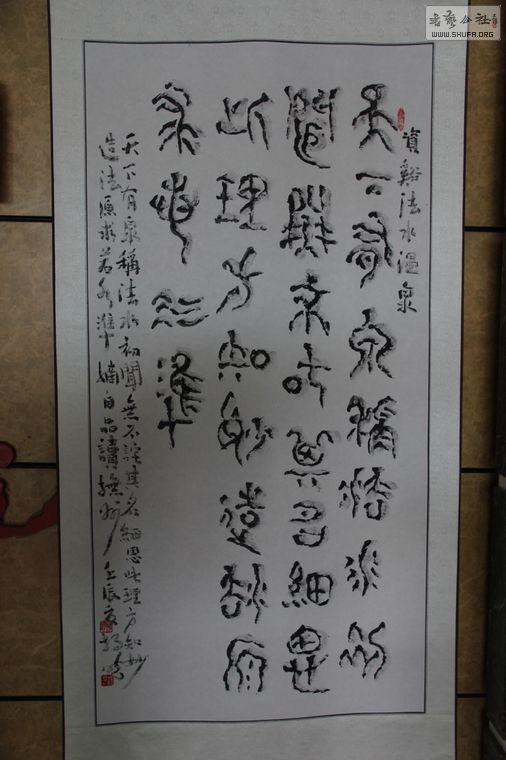 書藝公社
WWW.SHUFA.ORG
資谿法水温泉
天下有泉稱法水初
聞無不詫其名細思
此理方知妙造法原
求若水準
天下有泉稱法水初聞無不詫其名細思此理方知妙
造法原求若水準摘自品讀撫州壬辰夏